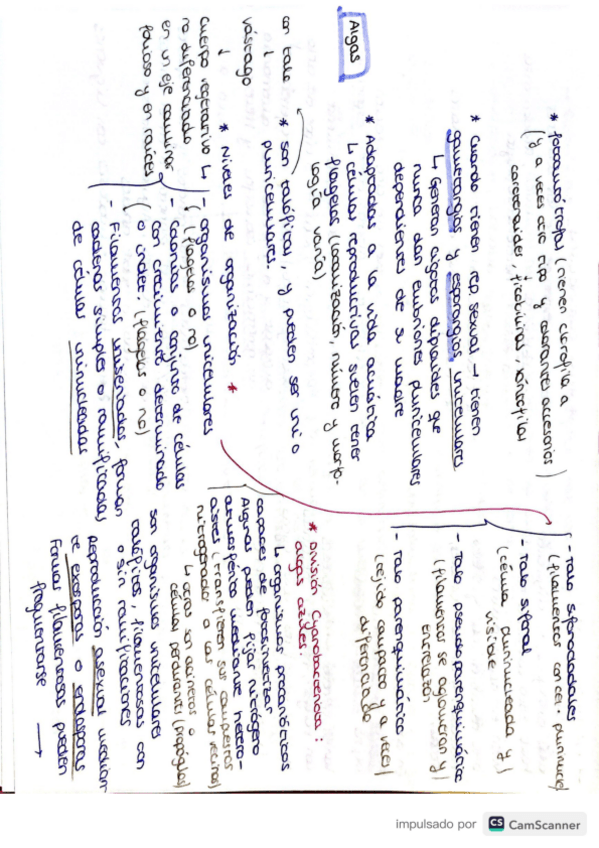 Algas
* fotoautótrofas (tienen clorofila a
(y a veces otro tipo y colorantes accesorios)
carotenoides, ficobilinas, xantofilas
* Cuando tienen rep. sexual → tienen
gametangios y esporangios unicelulares
↳ Generan cigotos diploides que
nunca dan embriones pluricelulares
dependientes de su madre
* Adaptadas a la vida acuática
↳ células reproductivas suelen tener
flagelos (localización, número y morfo-
logía varía)
* son talófitas, y pueden ser uni o
pluricelulares.
con talo
↓
vástago
↓
Cuerpo vegetativo
no diferenciado
en un eje caulinar
folioso y en raíces
* Niveles de organización *
↳ - organismos unicelulares
(flagelos o no)
- Colonias o conjunto de células
con crecimiento determinado
o indet. (flagelos o no)
- Filamentos uniseriados, forman
cadenas simples o ramificadas
de células uninucleadas
- Talo sifonocladales
(filamentos con cel. plurinucle)
- Talo sifonal
(célula plurinucleada y
visible)
- Talo pseudoparenquimático
(filamentos se aglomeran y
entrelazan)
- Talo parenquimático
(tejido compacto y a veces
diferenciado)
* División Cyanobacteriota:
algas azules.
↳ organismos procarióticos
capaces de fotosintetizar
Algunas pueden fijar nitrógeno
atmosférico mediante hetero-
cistes (transfieren sus compuestos
nitrogenados a las células vecinas)
↳ otras son acinetos o
células perdurante (propágulos)
son organismos unicelulares
talófitas, filamentosas con
o sin ramificaciones
Reproducción asexual median
te exosporas o endosporas
Formas filamentosas pueden
fragmentarse →
impulsado por CS CamScanner